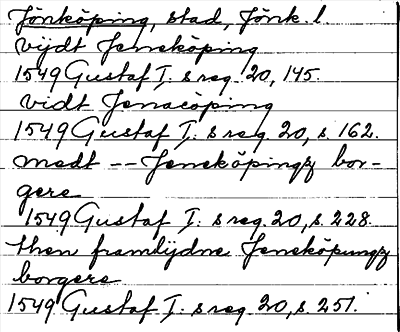 Jönköping, stad, Jönk. l.
vijdt Jeneköping
1549 Gustaf I:s reg. 20, 145.
vidt Jenacöping
1549 Gustaf I:s reg. 20, s. 162.
medt -- Jeneköpingz bor-
gere
1549 Gustaf I:s reg. 20, s. 228.
then framlijdne Jeneköpungz
borgere
1549 Gustaf I:s reg. 20, s. 251.